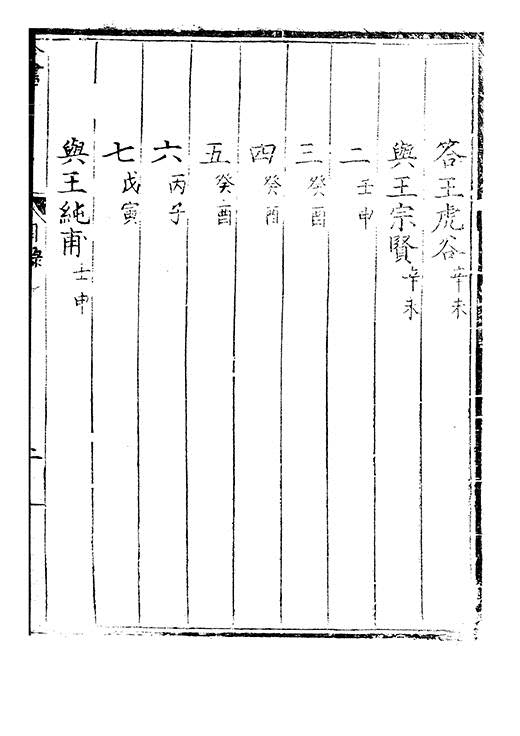 答王虎谷辛未
與王宗賢辛未
二壬申
三癸酉
四癸酉
五癸酉
六丙子
七戊寅
與王純甫壬申
目錄
二